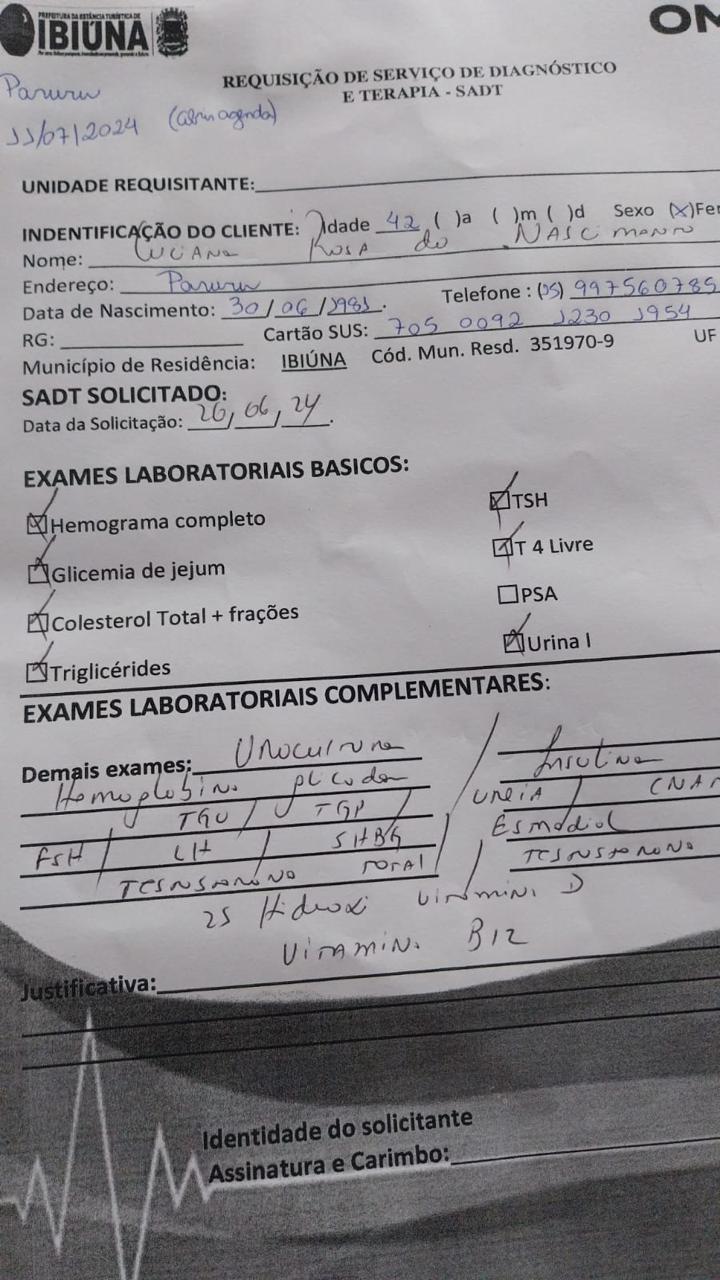 PREFEITURA DA ESTÂNCIA TURÍSTICA DE
IBIÚNA
ON
REQUISIÇÃO DE SERVIÇO DE DIAGNÓSTICO
E TERAPIA - SADT
Paruru
11/07/2024 (abrir agenda)
UNIDADE REQUISITANTE:
INDENTIFICAÇÃO DO CLIENTE: Idade 42 ( )a ( )m ( )d Sexo (x)Fe
Nome: Luciana Rosa do Nascimento
Endereço: Paruru
Data de Nascimento: 30/06/1981. Telefone : (15) 997560785
RG: Cartão SUS: 705 0092 1230 1954
Município de Residência: IBIÚNA Cód. Mun. Resd. 351970-9 UF
SADT SOLICITADO:
Data da Solicitação: 26/06/24.
EXAMES LABORATORIAIS BASICOS:
Hemograma completo TSH
Glicemia de jejum T 4 Livre
Colesterol Total + frações PSA
Triglicérides Urina I
EXAMES LABORATORIAIS COMPLEMENTARES:
Demais exames: Urocultura / Insulina
Hemoglobina glicada / Ureia /
TGO / TGP /
FSH / LH / SHBG / Estradiol
Testosterona Total / Testosterona
25 Hidroxi Vitamina D
Vitamina B12
Justificativa:
Identidade do solicitante
Assinatura e Carimbo: